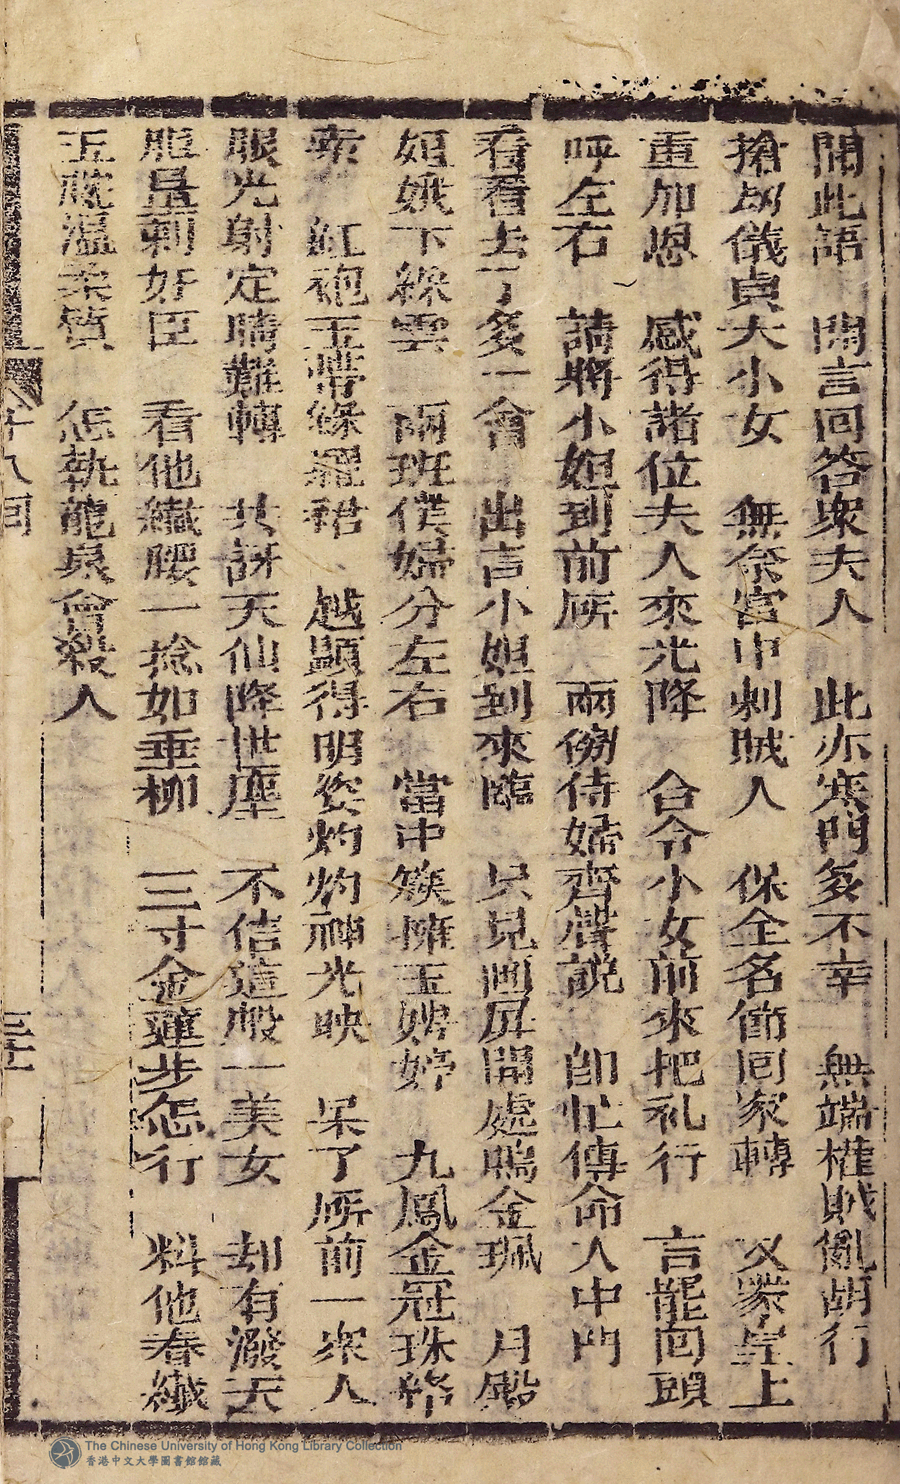 開此語　聞言回答衆夫人　此亦寒門多不幸　無端權賊亂胡行
搶刼儀貞大小女　無奈宮中刺賊人　保全名節囘家轉　又蒙皇上
重加恩　感得諸位夫人來光降　合令小女前來把礼行　言罷回頭
呼左右　請將小姐到前厛　兩傍侍婦齊聲説　即忙傳命入中門
看看去了多一會　出言小姐到來臨　只見画屏開處鳴金珮　月殿
姮娥下綵雲　兩班僕婦分左右　當中簇擁玉娉婷　九鳳金冠珠絡
索　紅袍玉帶綠羅裙　越顯得明姿灼灼神光映　呆了厛前一衆人
眼光射定睛難轉　共訝天仙降世塵　不信這般一美女　却有潑天
胆量剌奸臣　看他纖腰一捻如垂柳　三寸金蓮步怎行　料他春纖
玉琬溫柔質　怎執龍泉會殺人
十八囘
三十
The Chinese University of Hong Kong Library Collection
香港中文大學圖書館館藏